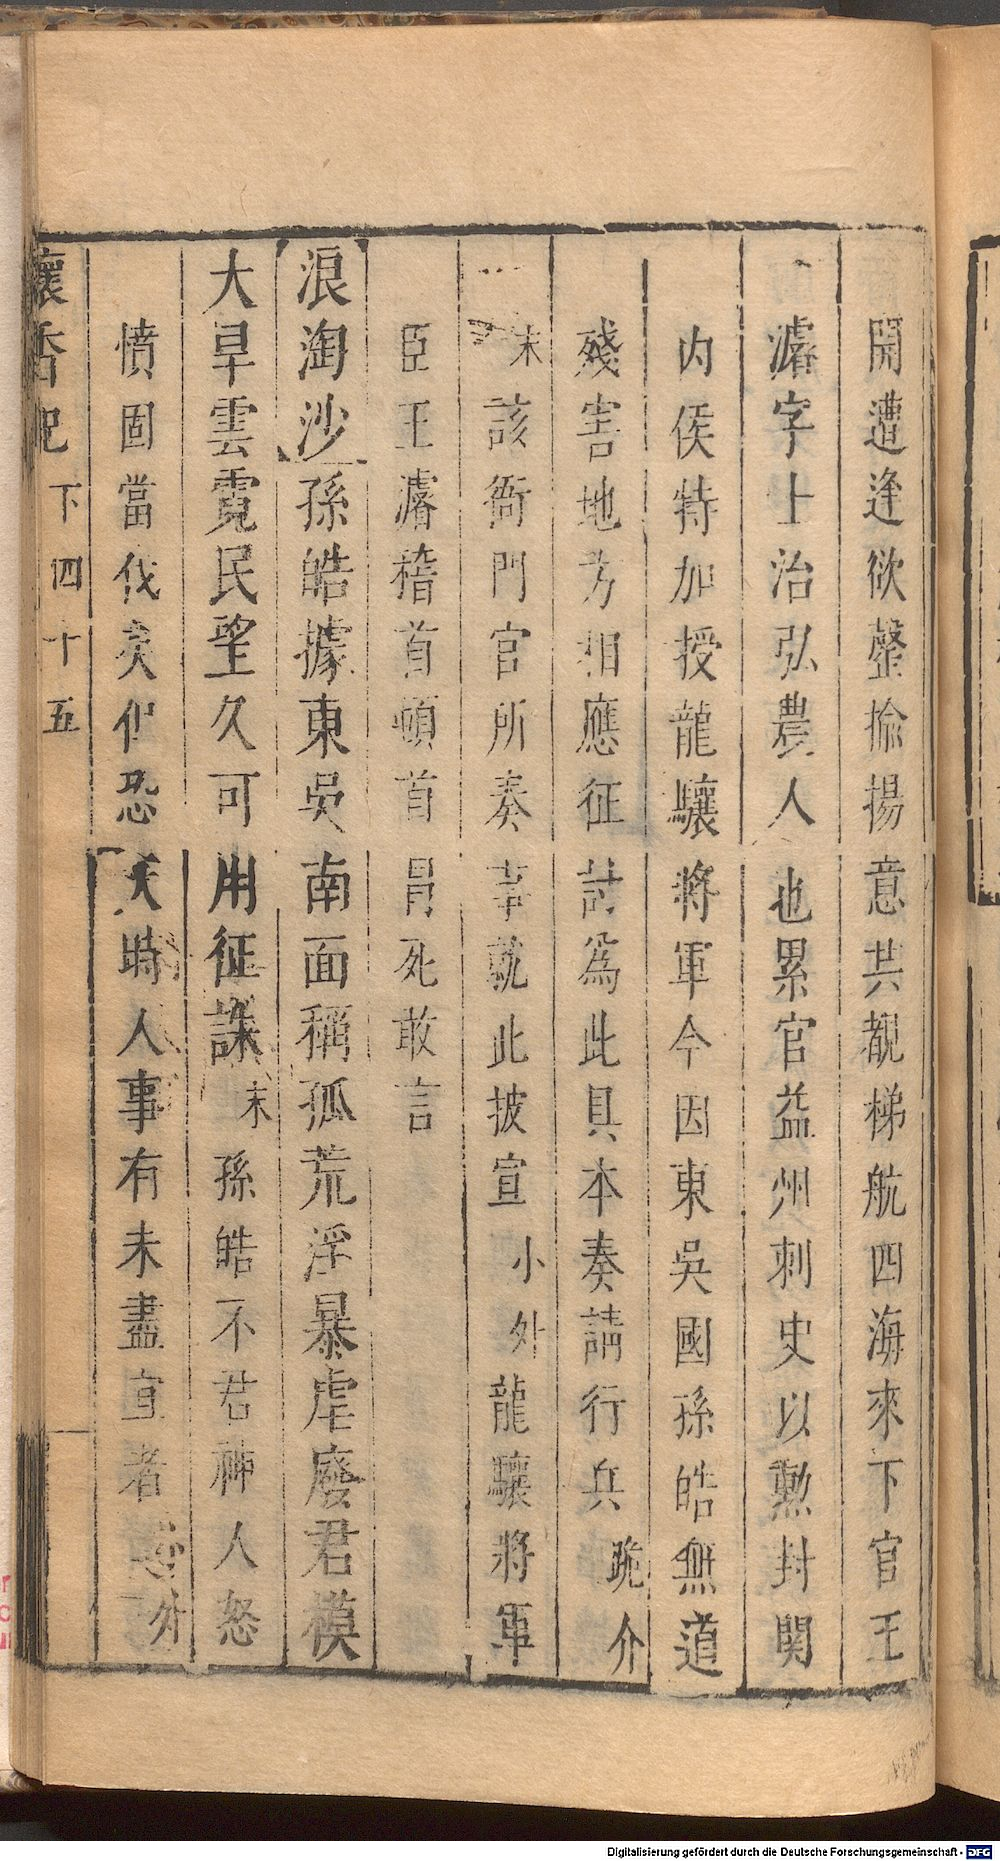 開遭逢欲罄揄揚意共覩梯航四海來下官王
濬字士治弘農人也累官益州刺史以勲封関
内侯特加授龍驤將軍今因東吳國孫皓無道
殘害地方相應征討爲此具本奏請行兵跪介
末該衙門官所奏事就此披宣小外龍驤將軍
臣王濬稽首頓首冐死敢言
浪淘沙孫皓據東吳南面稱孤荒淫暴虐廢君模
大旱雲霓民望久可用征誅末孫皓不君神人怒
憤固當伐矣但恐天時人事有未盡宜者外
懷香記下四十五
Digitalisierung gefördert durch die Deutsche Forschungsgemeinschaft - DFG